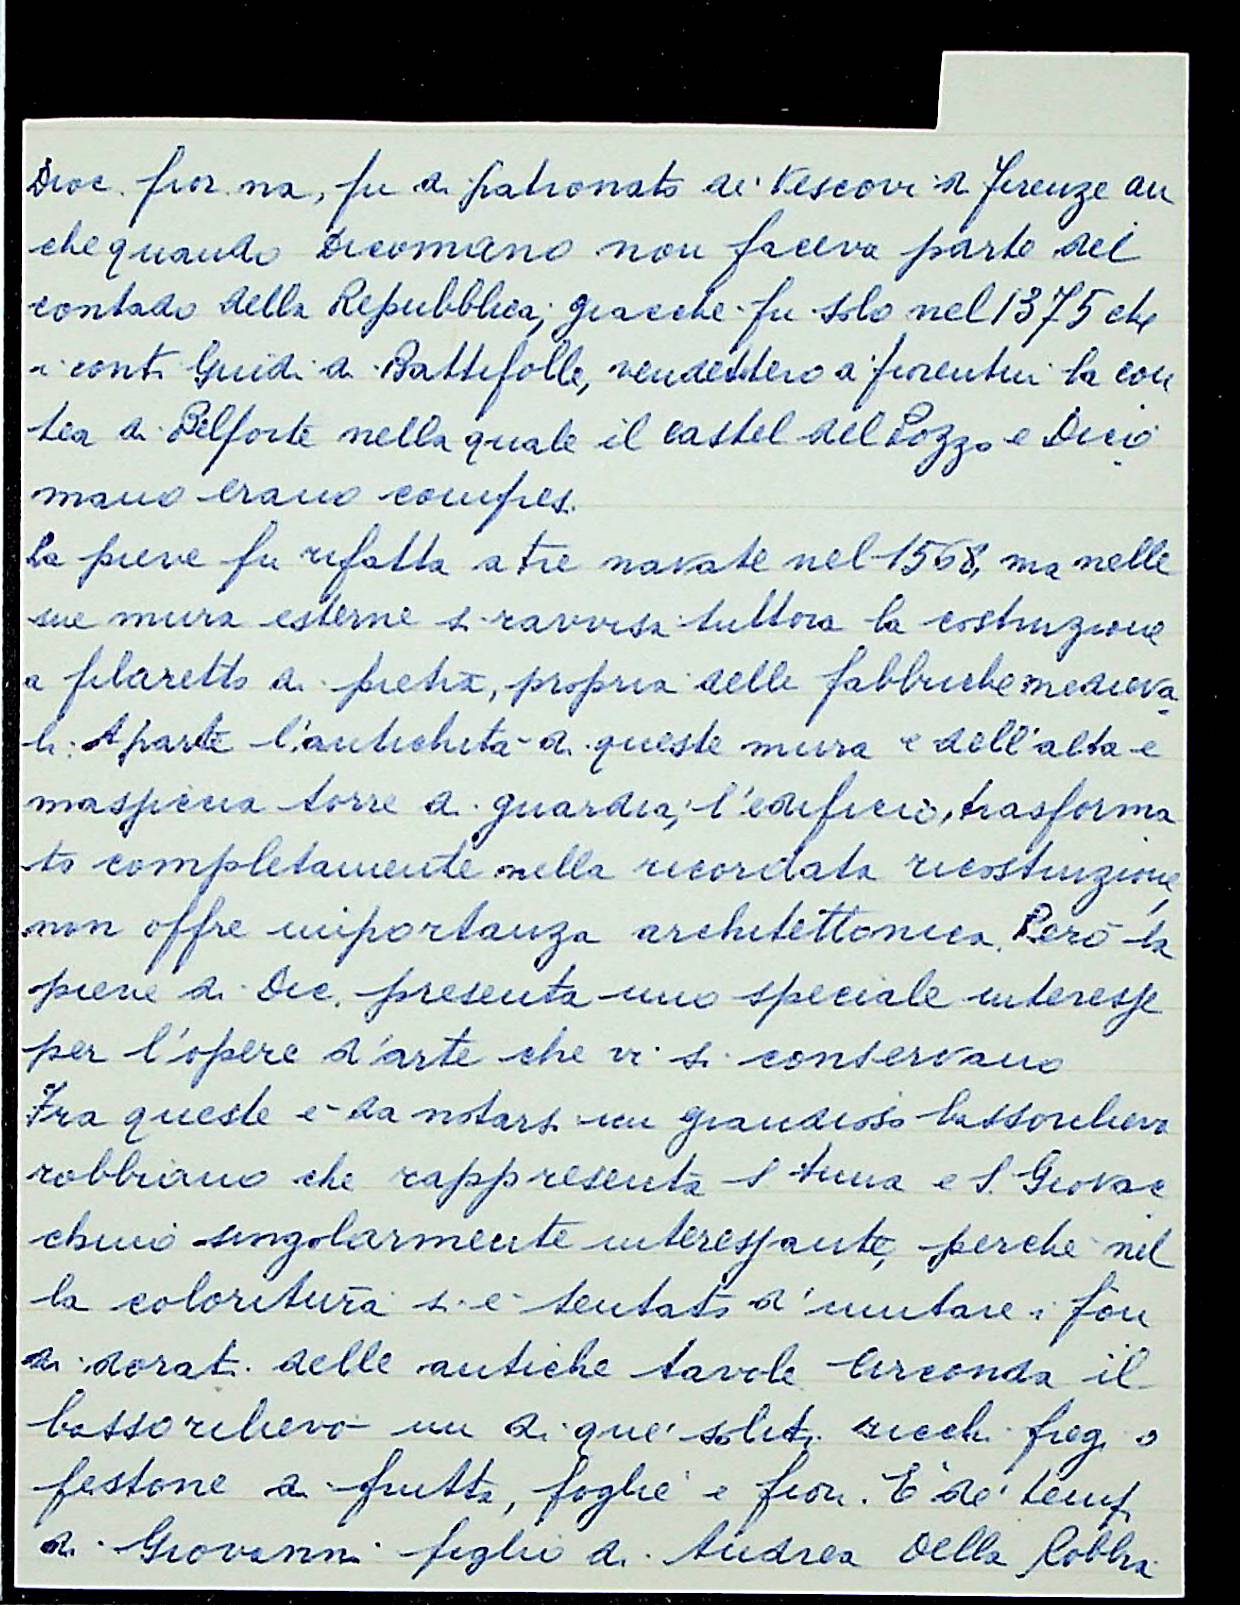 Dioc. fior.na, fu di patronato de' Vescovi di Firenze an
che quando Dicomano non faceva parte del
contado della Repubblica; giacché fu solo nel 1375 che
i conti Guidi di Battifolle, vendettero a' fiorentini la con
tea di Belforte nella quale il castel del Pozzo e Dico
mano erano compresi.
La pieve fu rifatta a tre navate nel 1568, ma nelle
sue mura esterne si ravvisa tuttora la costruzione
a filaretto di pietra, propria delle fabbriche medieva
li. A parte l'antichità di queste mura e dell'alta e
massiccia torre di guardia, l'edificio, trasforma
to completamente nella ricordata ricostruzione,
non offre importanza architettonica. Però la
pieve di Dic. presenta uno speciale interesse
per l'opere d'arte che vi si conservano
Fra queste è da notarsi un grandioso bassorilievo
robbiano che rappresenta S. Anna e S. Giovac
chino singolarmente interessante, perché nel
la coloritura si è tentato d'imitare i fon
di dorati delle antiche tavole Circonda il
bassorilievo un di que' soliti ricchi fregi o
festone di frutta, foglie e fiori. È de' tempi
di Giovanni figlio di Andrea Della Robbia